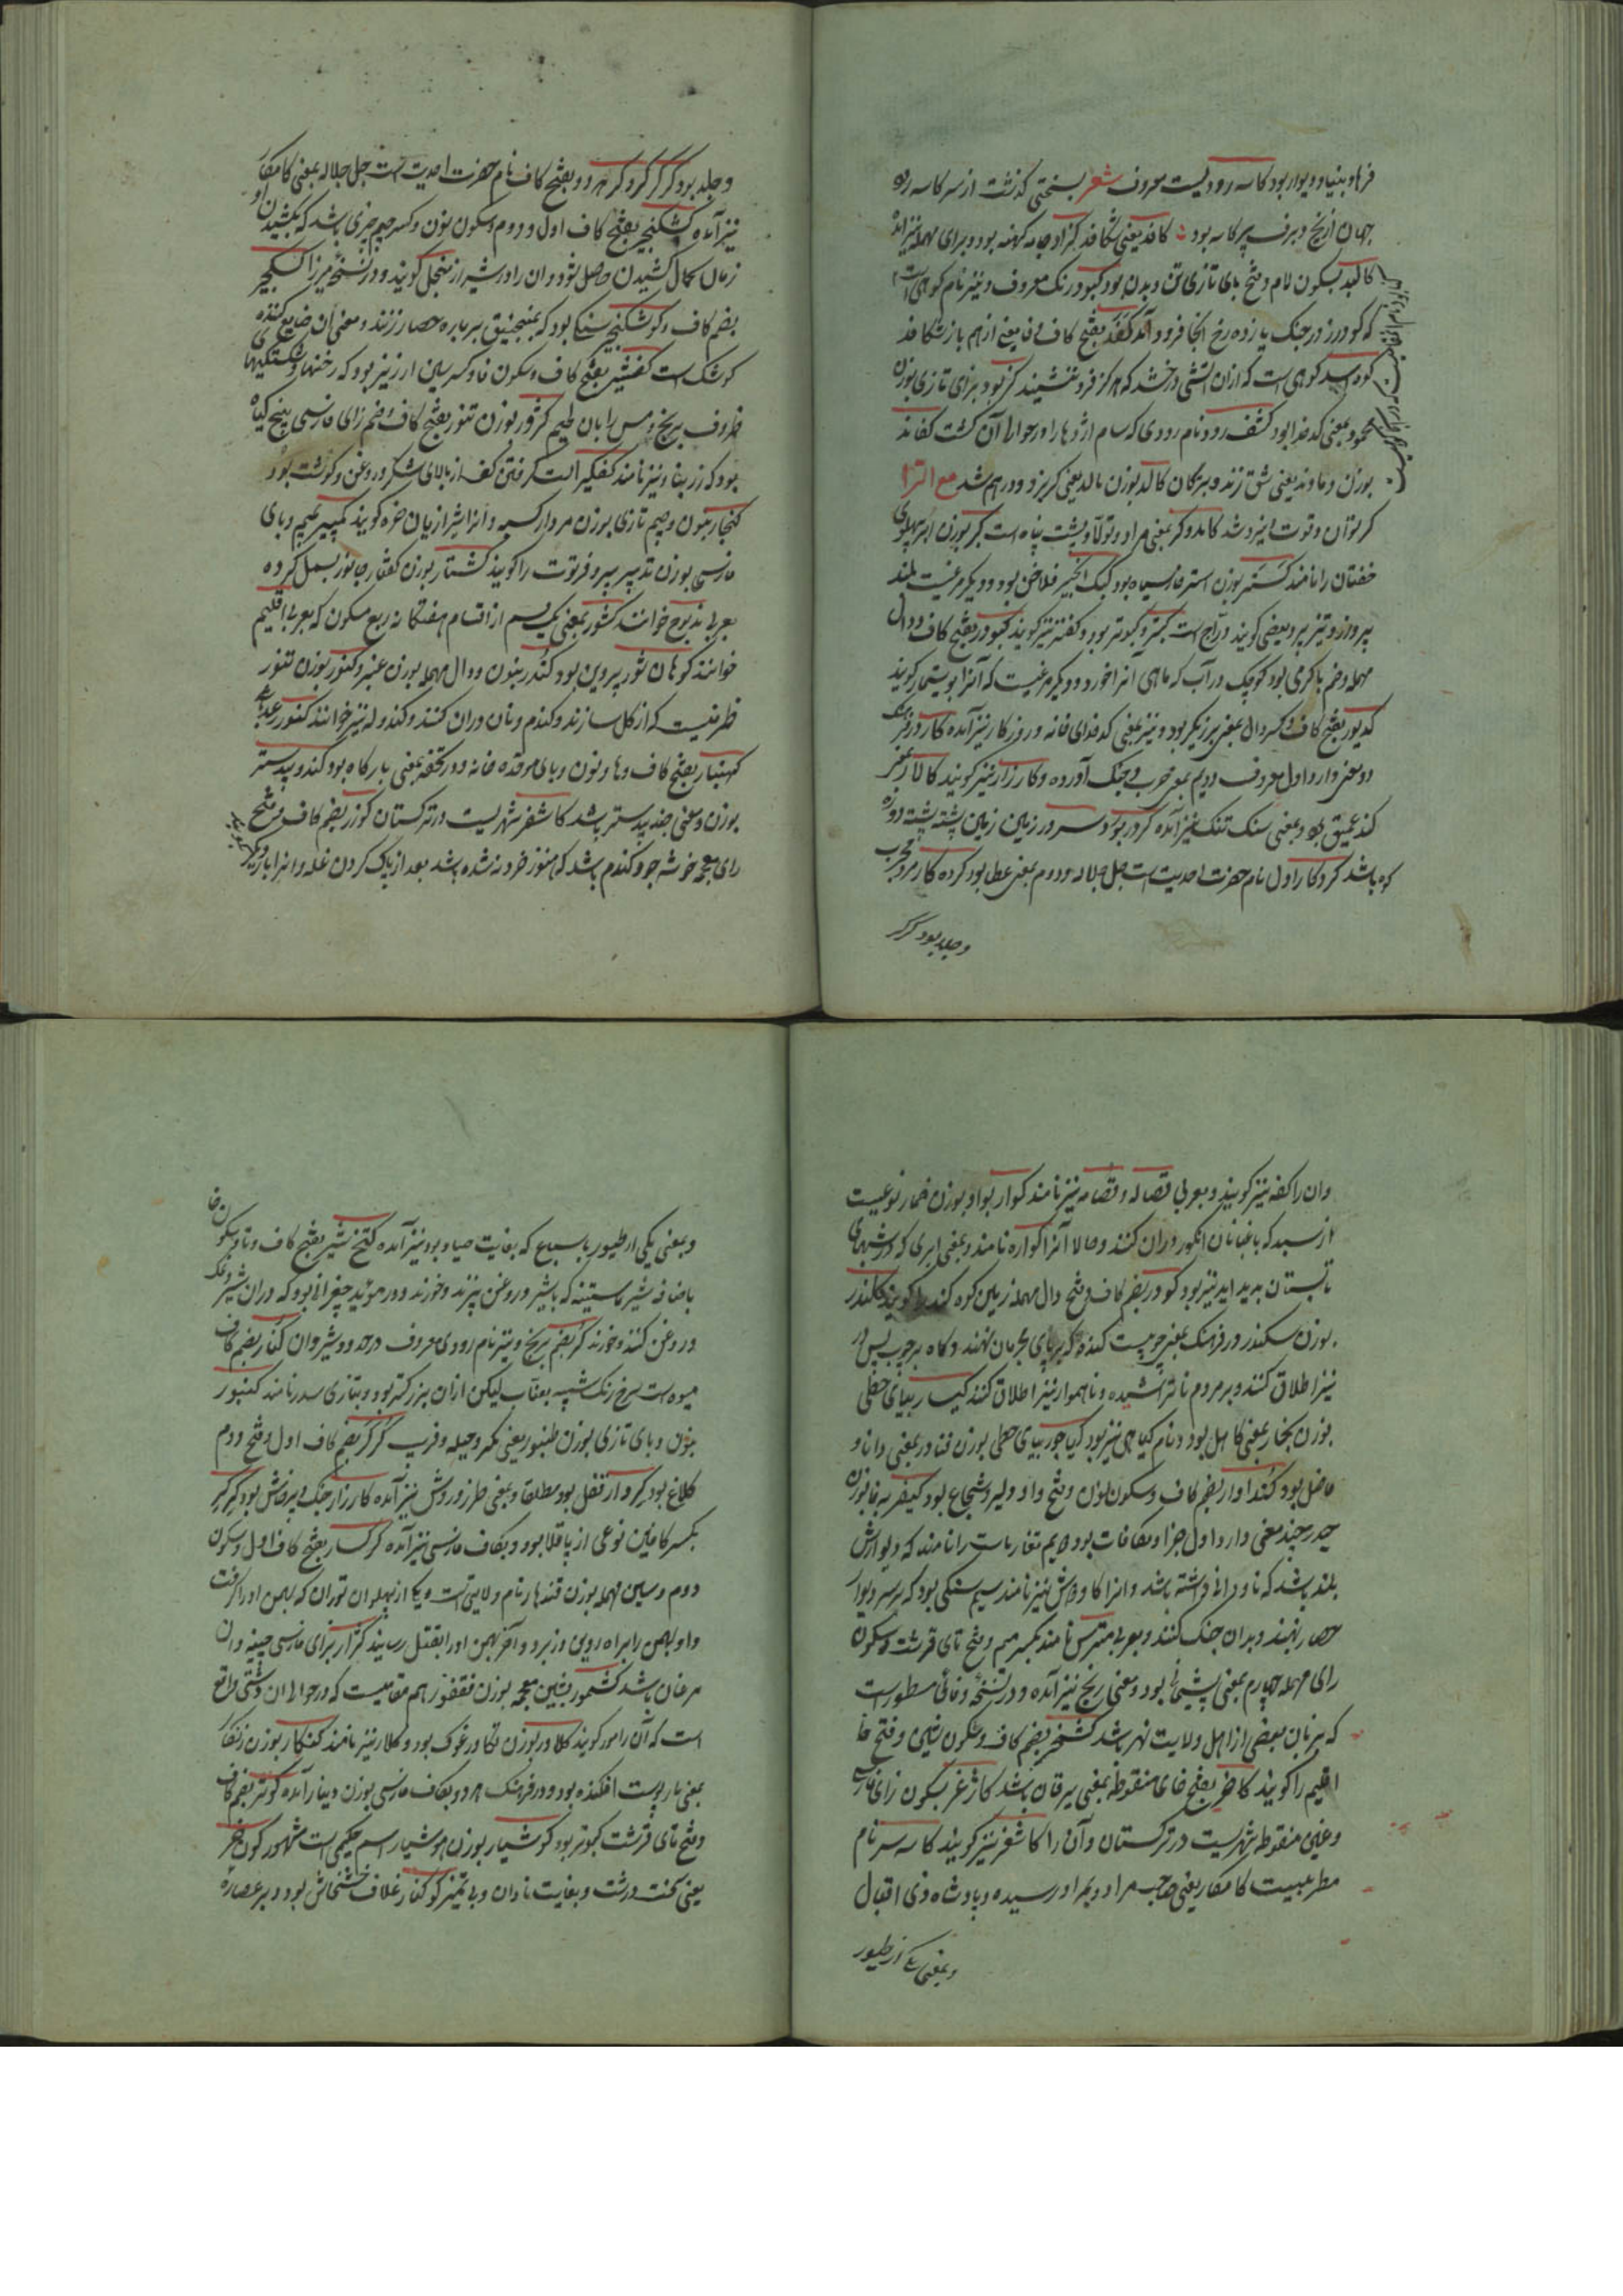 فرهاد بنیاد و دیوار بود کاسه رود یست معروف شعر بسختی گذشت از سر کاسه رود
جهان از یخ و برف پر کاسه بود کافد یعنی شکافد کژاد جامه کهنه بود و برای مهمله نیز آمده
کالبد بسکون لام و فتح بای تازی تن و بدن بود کبود رنگ معروف و نیز نام کوهی است
که گودرز در جنگ یازده رخ انجا فرود آمد کفد بفتح کاف و فا یعنی از هم باز شکافد
کوه اسد کوهی است که از ان اتشی درخشد که هرگز فرو ننشیند کزبود برای تازی بوزن
محمود بمعنی کدخدا بود کشف رود نام رودی که سام اژدها را در حوالی آن کشت کفاند
بوزن دماوند یعنی شق زند و بترکان کالد بوزن مالد یعنی گریزد و درهم شد مع الرا
کر توان و قوت ایزد شد کامد و کر بمعنی مراد و تولا و پشت پناه است کبر بوزن ابر پهلوی
خفتان را نامند کستر بوزن استر خار سیاه بود کبک انجیر فلاخن بود و دیگر مرغیست بلند
پرواز و تیز پر و بعضی گویند دراج است کبتر و کبوتر بود و کفتر نیز گویند کبودر بفتح کاف و دال
مهمله و ضم با کرمی بود کوچک در آب که ماهی آنرا خورد و دیگر مرغیست که آنرا بوتیمار گویند
کدیور بفتح کاف و کسر دال بمعنی برزیگر بود و نیز بمعنی کدخدای خانه و روزگار نیز آمده کارزار در فرهنگ
دو معنی دارد اول معروف دویم بمعنی حرب و جنگ آورده و کارزار نیز گویند کالار بمعنی
کند عمیق بود و بمعنی سنگ تنک نیز آمده کردر بود و سر در زمین زمین پشته پشته و دره
کوه باشد کردکار اول نام حضرت احدیت است جل جلاله و دوم بمعنی عطا بود کرده کار مرد مجرب
و جلد بود کرکر
و جلد بود کرکر کرد کر هر دو بفتح کاف نام حضرت احدیت است جل جلاله بمعنی کامکار
نیز آمده کشکنجیر بفتح کاف اول و دوم و سکون نون و کسر جیم چیزی باشد که بکشیدن او
زمان کمال کشیدن حاصل شود و ان را در شیراز منجل گویند و در نسخه میرزا کسکجیر
بضم کاف و کوشکنجیر سنگی بود که بمنجنیق بر باره حصار زنند و معنی ان ضایع کننده
کوشک است کفشیر بفتح کاف و سکون فا و کسر شین ارزیز بود که رخنها و شکستگیهای
ظروف برنج و مس را بان لحیم کژور بوزن تنور بفتح کاف و ضم زای فارسی بیخ گیاه
بود که زرنباد نیز نامند کفگیر الت گرفتن کف از بالای شکر و روغن و گوشت بود
کنجار بنون و جیم تازی بوزن مردار کسبه و انرا شیرازیان خره گویند کمپیر بمیم و بای
فارسی بوزن تدبیر پیر و فرتوت را گویند کشتار بوزن گفتار جانور بسمل کرده
بعربی مذبوح خوانند کشور بمعنی یک قسم از اقسام هفتگانه ربع مسکون که بعربی اقلیم
خوانند کوهان ثور پروین بود کندر بنون و دال مهمله بوزن عنبر و کنور بوزن تنور
ظرفیست که از گل سازند و گندم و نان در ان کنند و کندوله نیز خوانند کنور رعد باشد
کهنبار بفتح کاف و ها و نون و بای موحده خانه و در تحفه بمعنی بارگاه بود کندو بیدستر
بوزن و معنی جند بیدستر باشد کاشغر شهریست در ترکستان کوزر بضم کاف و فتح
زای معجمه خوشه جو و گندم باشد که هنوز خرد نشده باشد بعد از پاک کردن غله و انرا بار دیگر
وان را کفه نیز گویند و بعربی قصاله و قصامه نیز نامند کوار بواو بوزن خمار نوعیست
از سبد که باغبانان انگور در ان کنند و حالا آنرا کواره نامند و بمعنی ابری که در شبهای
تابستان پدید اید نیز بود کودر بضم کاف و فتح دال مهمله زمین کوه کند را گویند کلندر
بوزن سکندر در فرهنگ بمعنی چوبیست کنده که بر پای مجرمان نهند و گاه بر چوب پس در
نیز اطلاق کنند و بر مردم ناتراشیده و ناهموار نیز اطلاق کنند کیار بیای حطی
بوزن بخار بمعنی کاهل بود و نام گیاهی نیز بود کیاجور بیای حطی بوزن فنادر بمعنی دانا و
فاضل بود کنداوار بضم کاف و سکون نون و فتح واو دلیر و شجاع بود کیفر بفا بوزن
حیدر چند معنی دارد اول جزا و مکافات بود دویم تغار ماست را نامند که دیوارش
بلند باشد که ناودانی داشته باشد و انرا کاودش نیز نامند سیم سنگی بود که بر سر دیوار
حصار نهند و بدان جنگ کنند و بعربی مترس نامند بکسر میم و فتح تای قرشت و سکون
رای مهمله چهارم بمعنی پشیمانی بود و بمعنی رنج نیز آمده و در نسخه وفائی مسطور است
که بزبان بعضی از اهل ولایت نهر باشد کشخر بضم کاف و سکون شین و فتح خا
اقلیم را گویند کاخر بفتح خای منقوطه بمعنی یرقان باشد کاژغر بسکون زای فارسی
و غین منقوطه شهریست در ترکستان و آن را کاشغر نیز گویند کاسه سر نام
مطربیست کامکار یعنی صاحب مراد و بمراد رسیده و پادشاه ذی اقبال
و بمعنی یکی از طیور
و بمعنی یکی از طیور با سباع که بغایت صیاد بود نیز آمده کتخ شیر بفتح کاف و تا و سکون خا
باضافه شیر ماستینه که با شیر و روغن پزند و خورند و در موید چغرانی بود که در ان شیر و نمک
و روغن کنند و خورند کر بضم برنج و نیز نام رودی معروف در حدود شیروان کنار بضم کاف
میوه است سرخ رنگ شبیه بعناب لیکن ازان بزرگتر بود و بتازی سدر نامند کنبور
بنون و بای تازی بوزن طنبور یعنی مکر و حیله و فریب کرکر بضم کاف اول و فتح دوم
کلاغ بود کردار فعل بود مطلقا و بمعنی طرز و روش نیز آمده کارزار جنگ و پرخاش بود کرکر
بکسر کافین نوعی از باقلا بود و بکاف فارسی نیز آمده کرکسار بفتح کاف اول و سکون
دوم و سین مهمله بوزن قندهار نام ولایتی است و یکی از پهلوان توران که بهمن او را گرفت
و او بهمن را براه رویین دز برد و آخر بهمن او را بقتل رسانید کژار بزای فارسی چینه دان
مرغان باشد کشمور بشین معجمه بوزن فغفور نام مقامیست که در حوالی ان دشتی واقع
است که آن را مور گویند کلاور بوزن تکاور غوک بود و کلار نیز نامند کفکار بوزن زنکار
بمعنی مار پوست افکنده بود و در فرهنگ هر دو بکاف فارسی بوزن دینار آمده کوتر بضم کاف
و فتح تای قرشت کبوتر بود کوشیار بوزن هوشیار اسم حکیمی است مشهور کون خر
یعنی کنت درشت و بغایت نادان و بی تمیز کوکنار غلاف خشخاش بود و بر عصاره